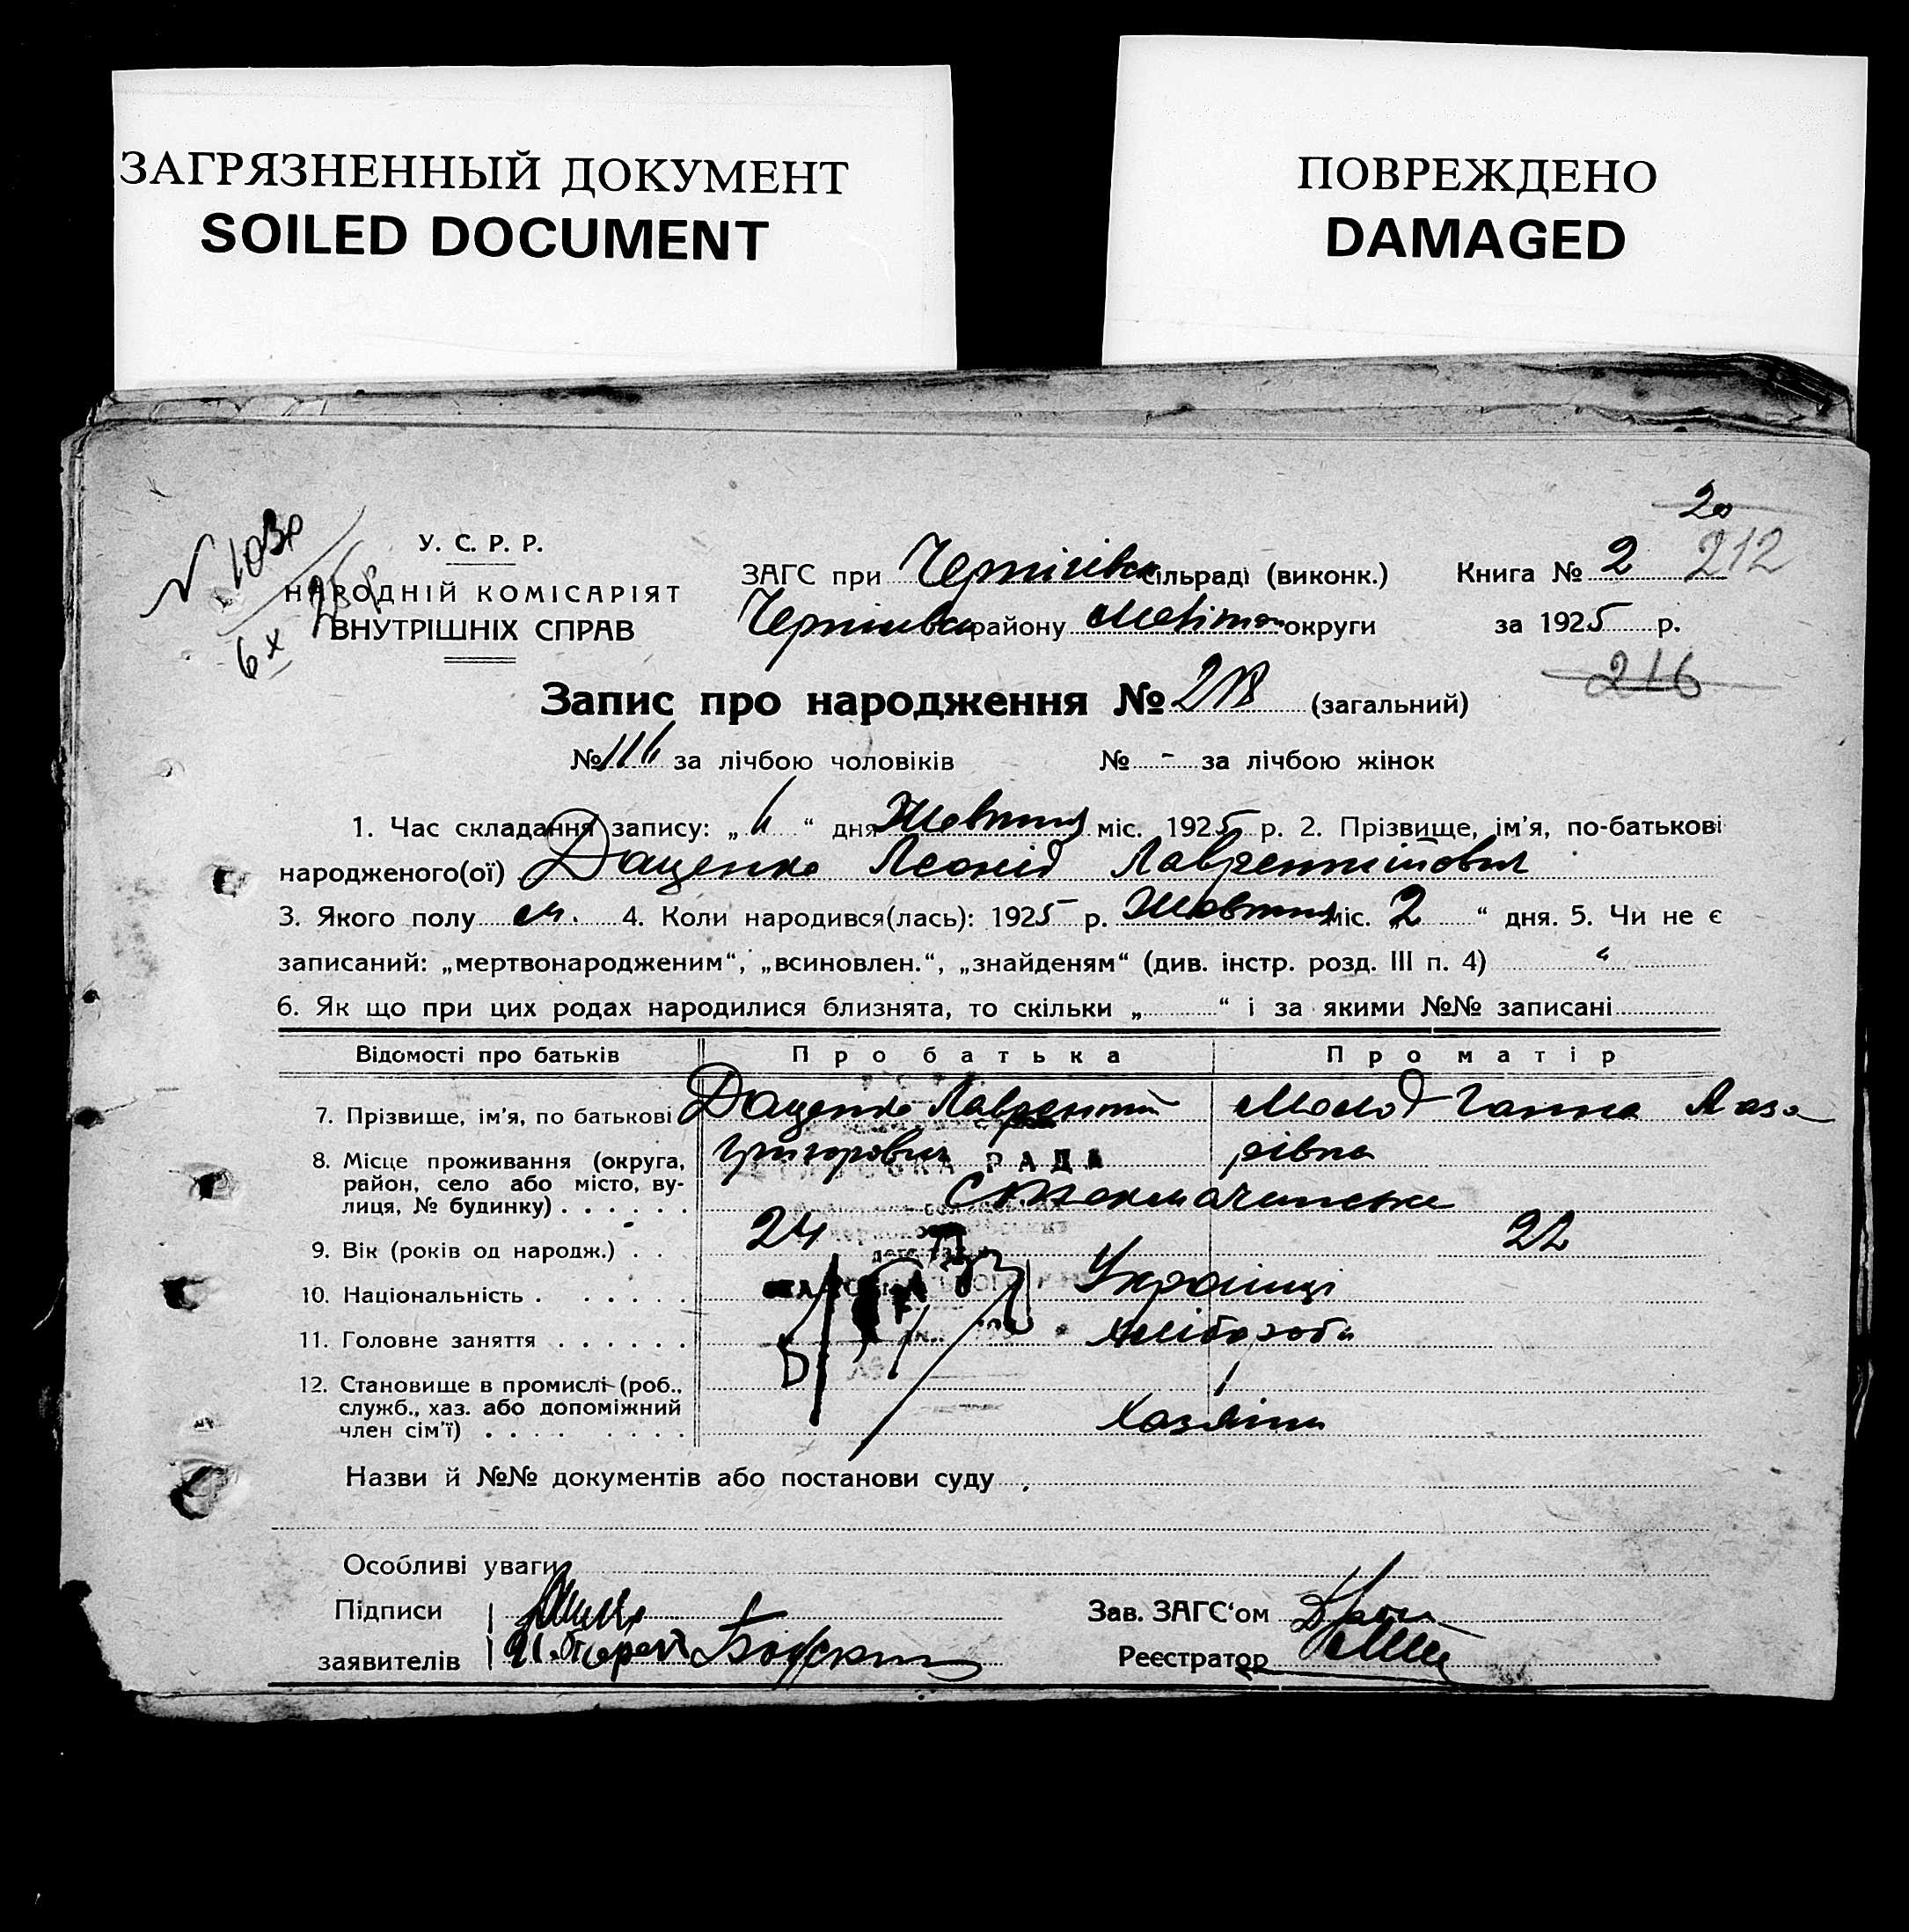 ЗАГРЯЗНЕННЫЙ ДОКУМЕНТ
SOILED DOCUMENT
ПОВРЕЖДЕНО
DAMAGED
20
212
У. С. Р. Р.
НАРОДНІЙ КОМІСАРІЯТ
ВНУТРІШНІХ СПРАВ
ЗАГС при Чернігівск сільраді (виконк.) Книга № 2
району округи за 1925 р.
216
Запис про народження № (загальний)
№ 116 за лічбою чоловіків № - за лічбою жінок
1. Час складання запису: „ “ дня Жовтня міс. 1925 р. 2. Прізвище, ім'я, по-батькові
народженого(ої) Даценко Леонід Лаврентійович
3. Якого полу м. 4. Коли народився(лась): 1925 р. Жовтня міс. „2 “ дня. 5. Чи не є
записаний: „мертвонародженим“, „всиновлен.“, „знайденям“ (див. інстр. розд. III п. 4)
6. Як що при цих родах народилися близнята, то скільки „ “ і за якими №№ записані
Відомості про батьків Про батька Про матір
7. Прізвище, ім'я, по батькові Даценко Лаврентій Молод Ганна Лаза
Григорович рівна
8. Місце проживання (округа,
район, село або місто, ву-
лиця, № будинку)
РАДА
9. Вік (років од народж.) 24 22
10. Національність Українці
11. Головне заняття Хлібороби
12. Становище в промислі (роб.,
служб., хаз. або допоміжний
член сім'ї) Хазяїни
Назви й №№ документів або постанови суду
Особливі уваги
Підписи Зав. ЗАГС'ом
заявителів Реєстратор